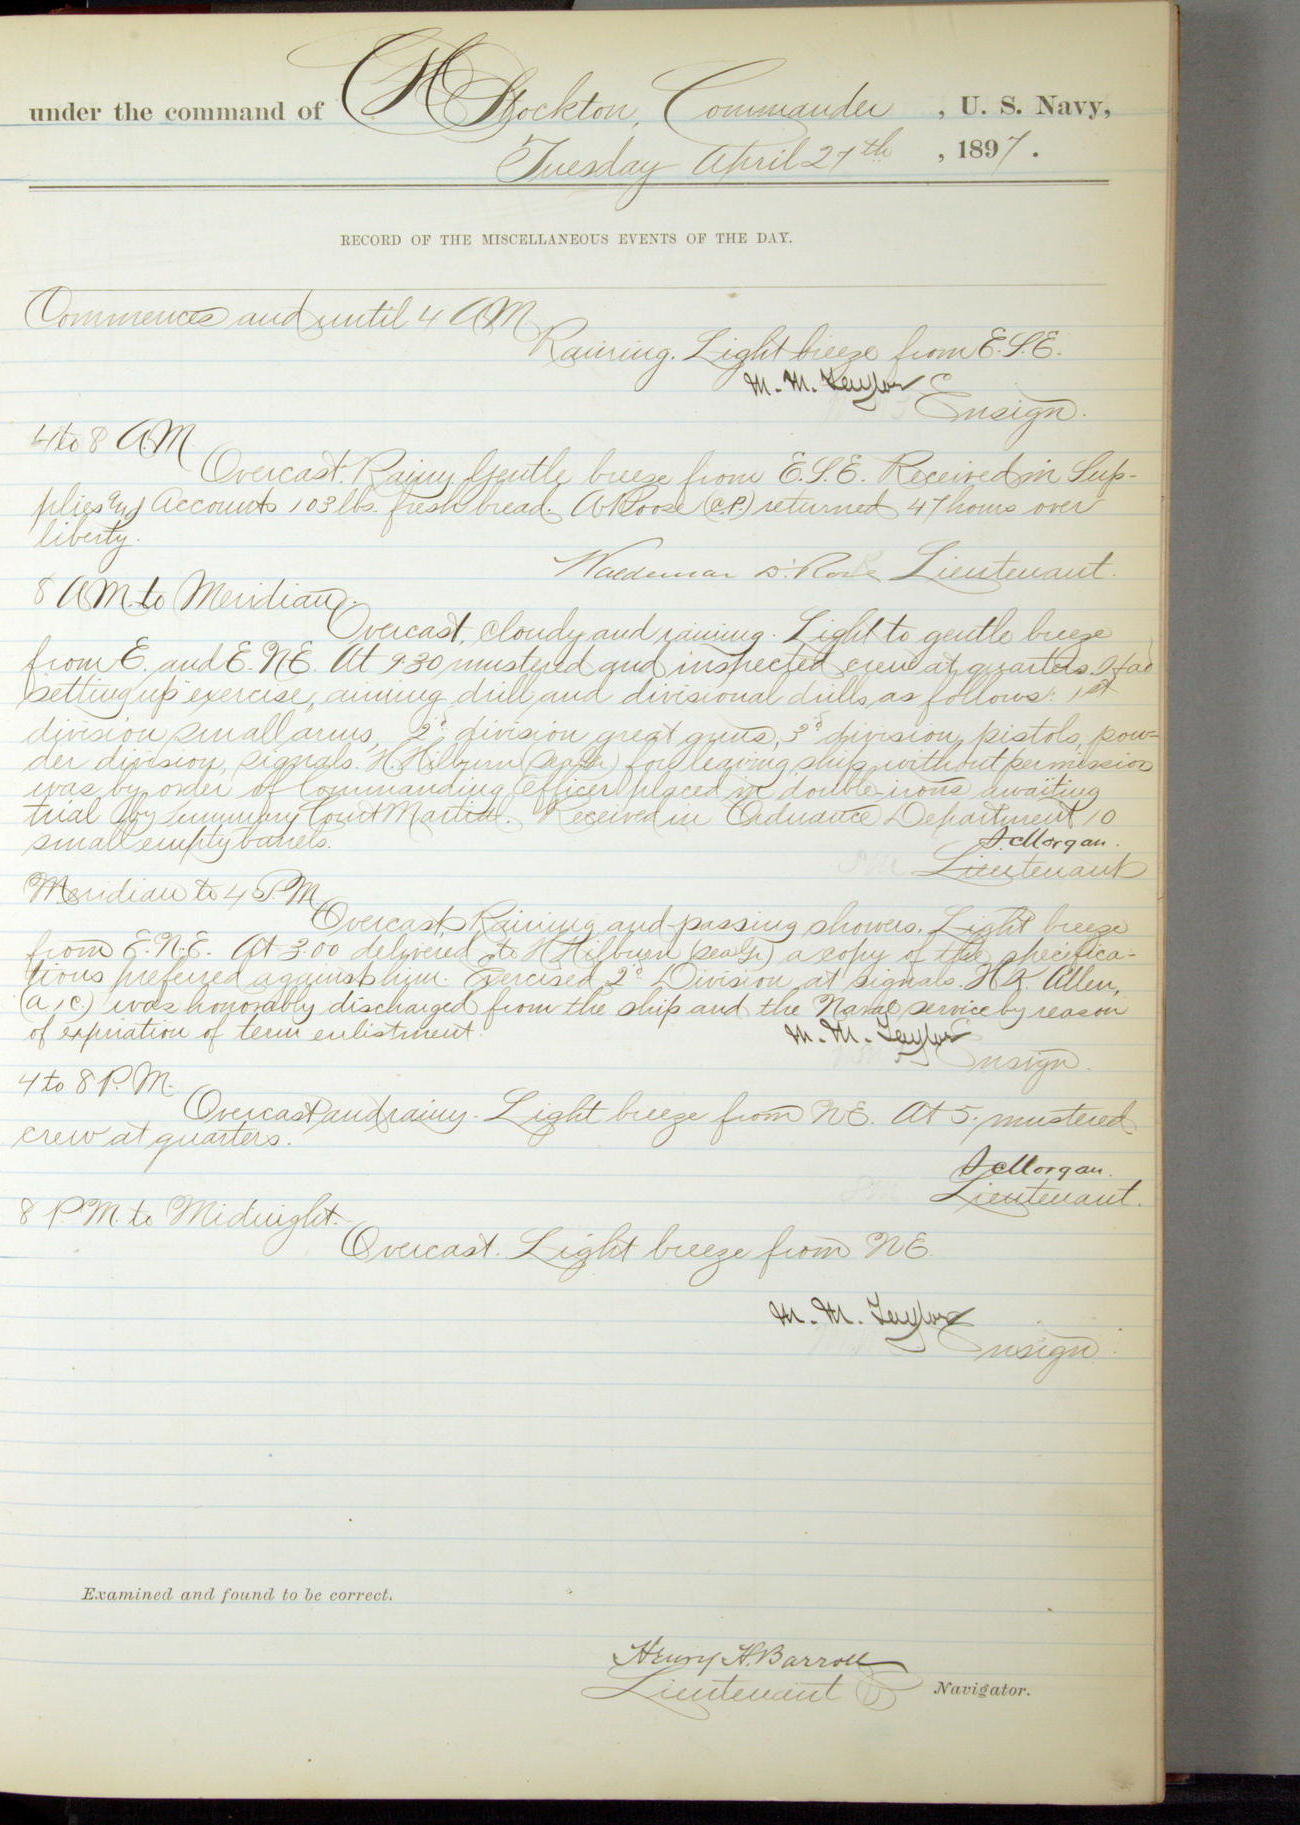 under the command of C H Stockton, Commander , U. S. Navy,
Tuesday April 27th , 1897.
RECORD OF THE MISCELLANEOUS EVENTS OF THE DAY.
Commences and until 4 A M
Raining. Light breeze from E.S.E.
M. M. Taylor
Ensign.
4 to 8 A.M.
Overcast. Rainy. Gentle breeze from E.S.E. Received in Sup-
plies and Accounts 103 lbs. fresh bread. A Roose (C.P.) returned 47 hours over
liberty.
Waldemar D. Rose Lieutenant.
8 A M to Meridian.
Overcast, cloudy and raining. Light to gentle breeze
from E. and E.N.E. At 9.30 mustered and inspected crew at quarters. Had
setting up exercise, aiming drill and divisional drills, as follows: 1st
division small arms, 2d division great guns, 3d division, pistols, pow-
der division, signals. H Hilburn (Sea Gr) for leaving ship without permission
was by order of Commanding Officer placed in double irons awaiting
trial by Summary Court Martial. Received in Ordnance Department 10
small empty barrels.
S. Morgan.
Lieutenant
Meridian to 4 P.M.
Overcast, Raining and passing showers. Light breeze
from E.N.E. At 3.00 delivered to H Hilburn (Sea Gr) a copy of the specifica-
tions preferred against him. Exercised 2d Division at signals. H K. Allen,
(a, c) was honorably discharged from the ship and the Naval service by reason
of expiration of term enlistment.
M. M. Taylor
Ensign.
4 to 8 P. M.
Overcast and rainy. Light breeze from NE. At 5. mustered
crew at quarters.
S Morgan.
Lieutenant.
8 P.M. to Midnight.
Overcast. Light breeze from NE.
M. M. Taylor
Ensign.
Examined and found to be correct.
Henry H. Barroll
Lieutenant Navigator.